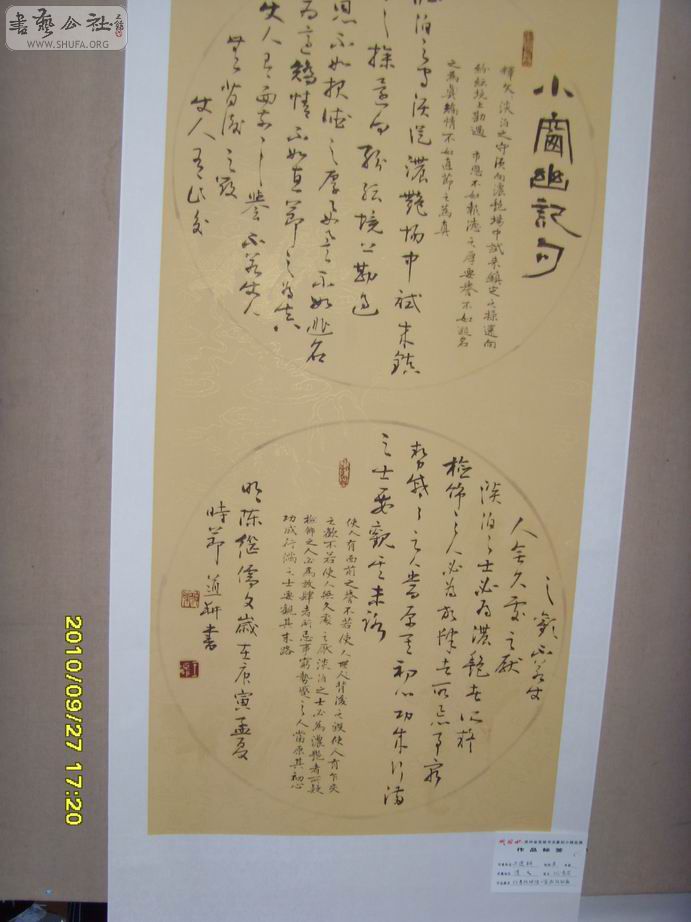 書藝公社
WWW.SHUFA.ORG
小窗幽記句
釋文淡泊之守須向濃艷場中試来鎮定之操還向
紛紜境上勘過 市恩不如報德之厚要譽不如逃名
之為真矯情不如直節之為真
泊之守須從濃艷場中試来鎮
之操還向紛紜境上勘過
恩不如報德之厚要譽不如逃名
為適矯情不如直節之為真
使人有面前之譽不若使人
無背後之毀
使人有乍交
之歡不若使
人無久處之厭
淡泊之士必為濃艷者所疑
檢飾之人必為放肆者所忌事窮
勢蹙之人當原其初心功成行滿
之士要觀其末路
使人有面前之譽不若使人無人背後之毀使人有乍交
之歡不若使人無久處之厭淡泊之士必為濃艷者所疑
檢飾之人必為放肆者所忌事窮勢蹙之人當原其初心
功成行滿之士要觀其末路
明陳繼儒文歲在庚寅孟夏
時節道耕書
作品标签
2010/09/27 17:20